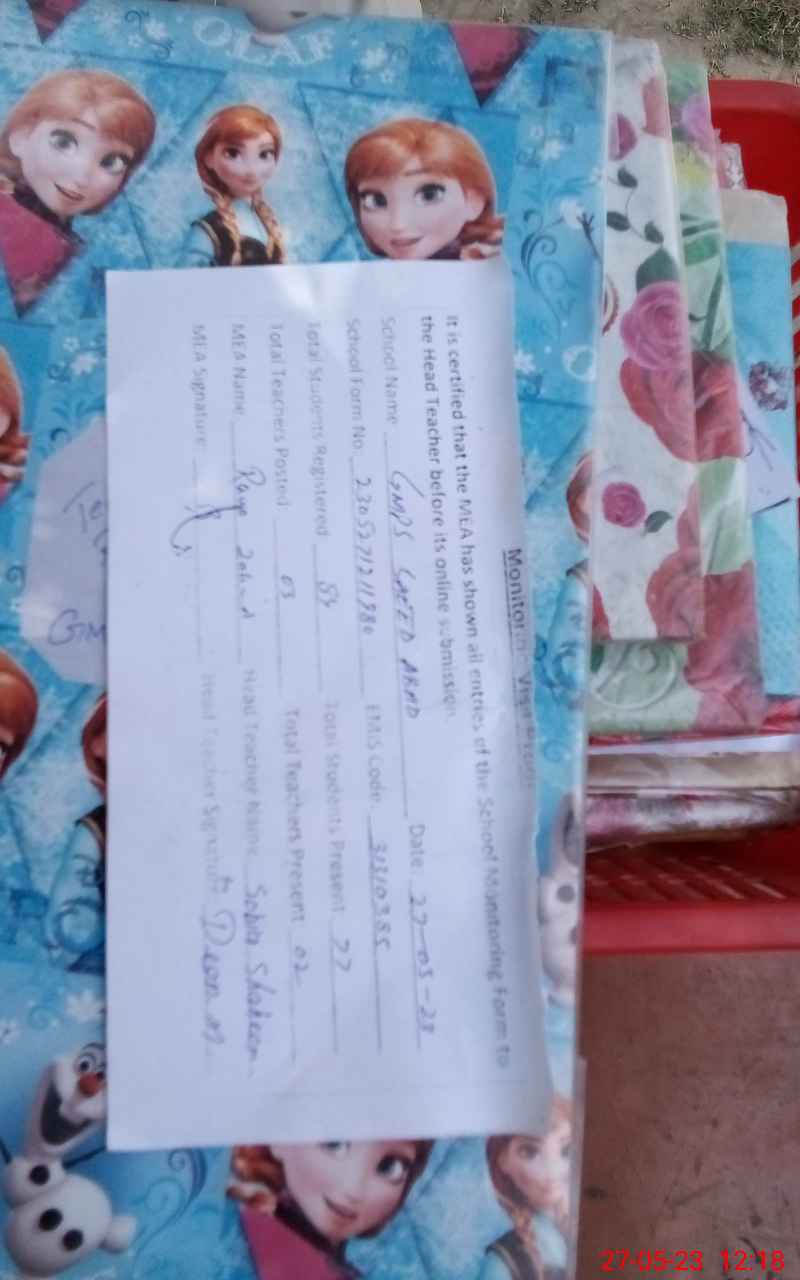 OLAF
Monitoring Visit
It is certified that the MEA has shown all entries of the School Monitoring Form to
the Head Teacher before its online submission.
School Name GMPS SAEED ABAD Date: 27-05-23
School Form No. 2305271211980 EMIS Code: 31310385
Total Students Registered 84 Total Students Present 77
Total Teachers Posted 03 Total Teachers Present 02
MEA Name Head Teacher Name Shaheen
MEA Signature Head Teacher Signature
27-05-23 12:18